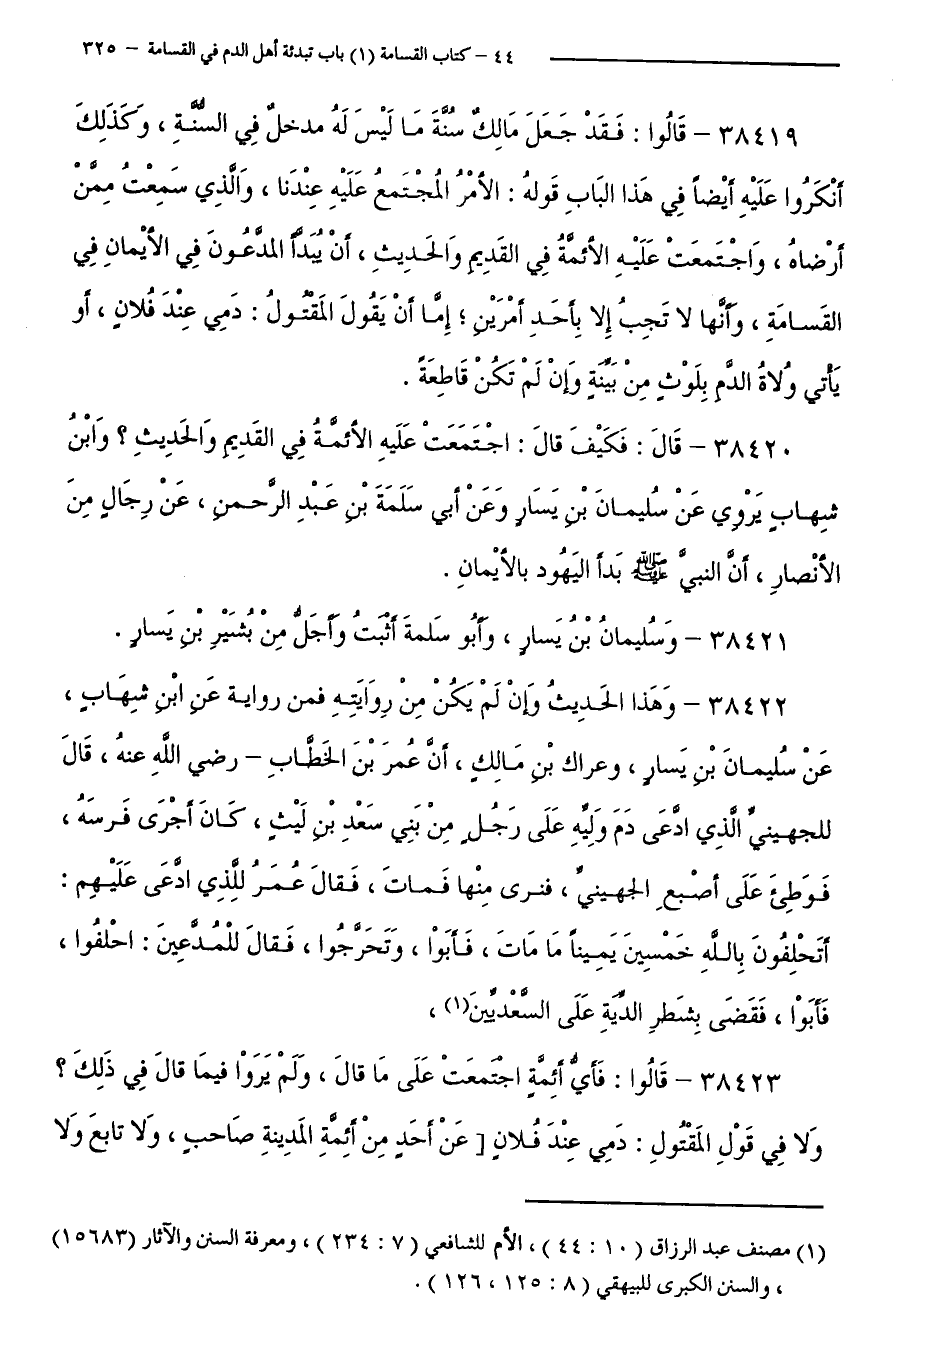 ٤٤ – كتاب القسامة (١) باب تبدئة أهل الدم في القسامة – ٣٢٥
٣٨٤١٩ – قَالُوا : فَقَدْ جَعَلَ مَالِكٌ سُنَّةَ مَا لَيْسَ لَهُ مدخلٌ فِي السُّنَّةِ ، وَكَذَلِكَ
أَنْكَرُوا عَلَيْهِ أَيْضاً فِي هَذَا البَابِ قَولهُ : الأَمْرُ الُمجْتَمعُ عَلَيْهِ عِنْدَنَا ، وَالَّذِي سَمِعْتُ مِمَّنْ
أَرْضاهُ ، وَاجْتَمَعَتْ عَلَيْهِ الأئمَّةُ فِي القَدِيمِ وَالحَدِيثِ ، أَنْ يُبَدَّأَ المدَّعُونَ فِي الأَيْمانِ فِي
القَسامَةِ ، وَأَنَّها لا تَجِبُ إِلا بِأَحَدِ أَمْرَيْنِ ؛ إِمَّا أَنْ يَقُولَ المَقْتُولُ : دَمِي عِنْدَ فُلانٍ ، أَو
يَأْتي وُلاةُ الدَّمِ بِلَوْثٍ مِنْ بَيِّنَةٍ وَإِنْ لَمْ تَكُنْ قَاطِعَةً .
٣٨٤٢٠ – قَالَ : فَكَيْفَ قالَ : اجْتَمَعَتْ عَلَيهِ الأئمَّةُ فِي القَدِيمِ وَالحَدِيثِ ؟ وَابْنُ
شِهابٍ يَرْوِي عَنْ سُليمانَ بْنِ يَسَارٍ وَعَنْ أَبي سَلَمَةَ بْنِ عَبْدِ الرَّحمنِ ، عَنْ رِجَالٍ مِنَ
الأنْصارِ ، أَنَّ النبيَّ ﷺ بَدَأَ اليَهُود بالأَيْمانِ .
٣٨٤٢١ – وَسُليمانُ بْنُ يَسارٍ ، وَأَبُو سَلمةَ أَثْبَتُ وَأَجَلُّ مِنْ بُشَيْرِ بْنِ يَسارٍ .
٣٨٤٢٢ – وَهَذا الحَديثُ وَإِنْ لَمْ يَكُنْ مِنْ رِوَايَتِهِ فمن رواية عَنِ ابْنِ شِهَابٍ ،
عَنْ سُليمانَ بْنِ يَسارٍ ، وعراك بْنِ مَالِكٍ ، أَنَّ عُمرَ بْنَ الخَطَّابِ – رضي اللَّهِ عنهُ ، قَالَ
للجهينيِّ الَّذِي ادَّعَى دَمَ وَلِيِّهِ عَلَى رَجُلٍ مِنْ بَنِي سَعْدِ بْنِ لَيْثٍ ، كَانَ أَجْرَى فَرسَهُ ،
فَوَطِئَ عَلَى أصْبعِ الجهينيِّ ، فنرى مِنْها فَماتَ ، فَقالَ عُمَرُ للَّذِي ادَّعَى عَلَيْهِم :
أَتَحْلِفُونَ بِاللَّهِ خَمْسِينَ يَمِيناً مَا مَاتَ ، فَأَبَوْا ، وَتَحَرَّجُوا ، فَقالَ للْمُدَّعِينَ : احْلفُوا ،
فَأَبَوْا ، فَقَضَى بِشَطرِ الدِّيَةِ عَلَى السَّعْدِيِّينَ(١) ،
٣٨٤٢٣ – قَالُوا : فَأَيُّ أَئِمَّةٍ اجتَمعَتْ عَلَى مَا قالَ ، وَلَمْ يَرَوْا فيمَا قالَ فِي ذَلِكَ ؟
وَلا فِي قَوْلِ المَقْتُولِ : دَمِي عِنْدَ فُلانٍ [ عَنْ أَحَدٍ مِنْ أَئِمَّةِ المَدِينةِ صَاحبٍ ، وَلا تابعَ وَلا
(١) مصنف عبد الرزاق ( ١٠ : ٤٤ ) ، الأم للشافعي ( ٧ : ٢٣٤ ) ، ومعرفة السنن والآثار (١٥٦٨٣)
، والسنن الكبرى للبيهقي ( ٨ : ١٢٥ ، ١٢٦ ) .